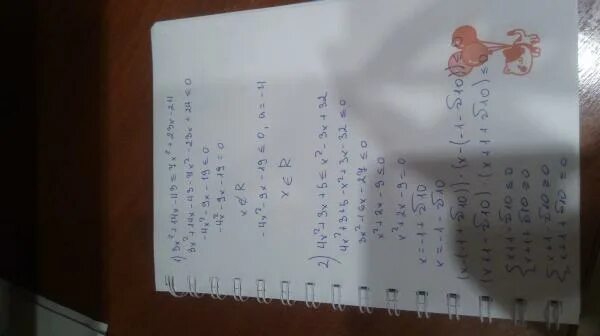 1) 3x²+14x-43≤7x²+23x-24
3x²+14x-43-7x²-23x+24≤0
-4x²-9x-19≤0
-4x²-9x-19=0
x∉R
-4x²-9x-19≤0, a=-4
x∈R
2) 4x²+3x+5≤x²-3x+32
4x²+3+5-x²+3x-32≤0
3x²+6x-27≤0
x²+2x-9≤0
x²+2x-9=0
x=-1+√10
x=-1-√10
(x-(-1+√10))·(x-(-1-√10))≤0
(x+1-√10)·(x+1+√10)≤0
{x+1-√10≤0
{x+1+√10≥0
{x+1-√10≥0
{x+1+√10≤0